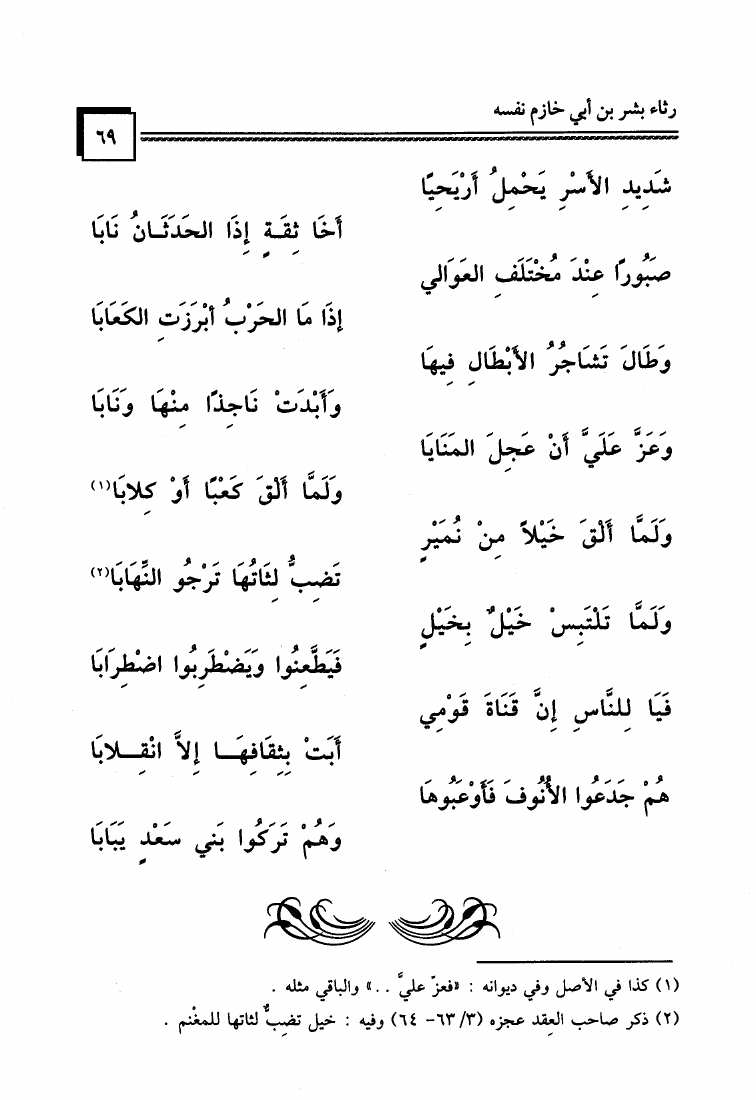 رثاء بشر بن أبي خازم نفسه
٦٩
شَدِيدِ الأَسْرِ يَحْمِلُ أَرْيَحِيًّا
أَخَا ثِقَةٍ إِذَا الحَدَثَانُ نَابَا
صَبُورًا عِنْدَ مُخْتَلَفِ العَوَالي
إِذَا مَا الحَرْبُ أَبْرَزَتِ الكَعَابَا
وَطَالَ تَشَاجُرُ الأَبْطَالِ فِيهَا
وَأَبْدَتْ نَاجِذًا مِنْهَا وَنَابَا
وَعَزَّ عَلَيَّ أَنْ عَجِلَ المَنَايَا
وَلَمَّا أَلْقَ كَعْبًا أَوْ كِلابَا(١)
وَلَمَّا أَلْقَ خَيْلاً مِنْ نُمَيْرٍ
تَضِبُّ لِثَاتُهَا تَرْجُو النِّهَابَا(٢)
وَلَمَّا تَلْتَبِسْ خَيْلٌ بِخَيْلٍ
فَيَطَّعِنُوا وَيَضْطَرِبُوا اضْطِرَابَا
فَيَا لِلنَّاسِ إِنَّ قَنَاةَ قَوْمِي
أَبَتْ بِثِقَافِهَـا إِلاَّ انْقِـلابَا
هُمْ جَدَعُوا الأُنُوفَ فَأَوْعَبُوهَا
وَهُمْ تَرَكُوا بَنِي سَعْدٍ يَبَابَا
(١) كذا في الأصل وفي ديوانه : «فعزّ عليَّ . .» والباقي مثله .
(٢) ذكر صاحب العِقد عجزه (٣/ ٦٣- ٦٤) وفيه : خيل تضِبُّ لثاتها للمغْنم .